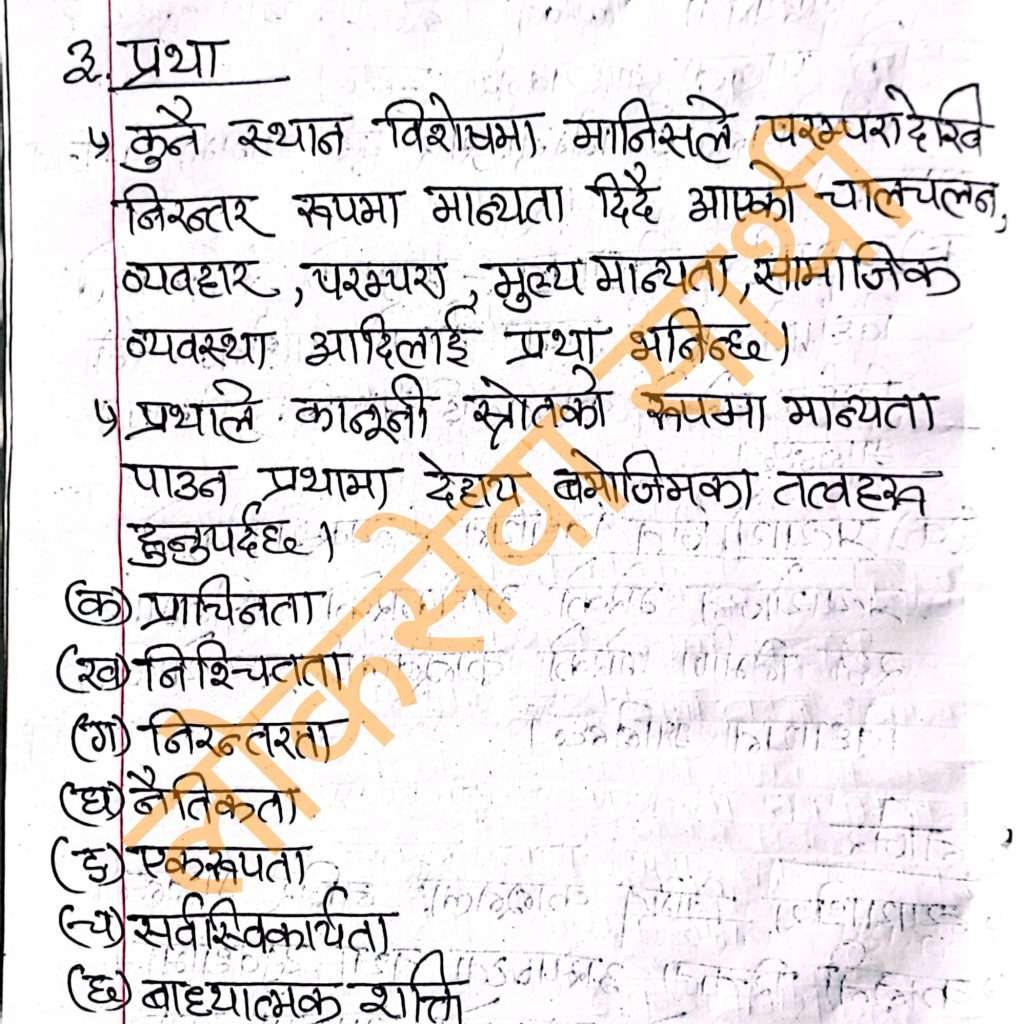 ३. प्रथा
↳ कुनै स्थान विशेषमा मानिसले परम्परादेखि
निरन्तर रूपमा मान्यता दिदै आएको चालचलन,
व्यवहार, परम्परा, मुल्य मान्यता, सामाजिक
व्यवस्था आदिलाई प्रथा भनिन्छ।
↳ प्रथाले कानूनी स्रोतको रूपमा मान्यता
पाउन प्रथामा देहाय बमोजिमका तत्वहरू
हुनुपर्दछ।
(क) प्राचिनता
(ख) निश्चितता
(ग) निरन्तरता
(घ) नैतिकता
(ङ) एकरूपता
(च) सर्वस्विकार्यता
(छ) बाध्यात्मक शक्ति
लोकसेवा सारथी